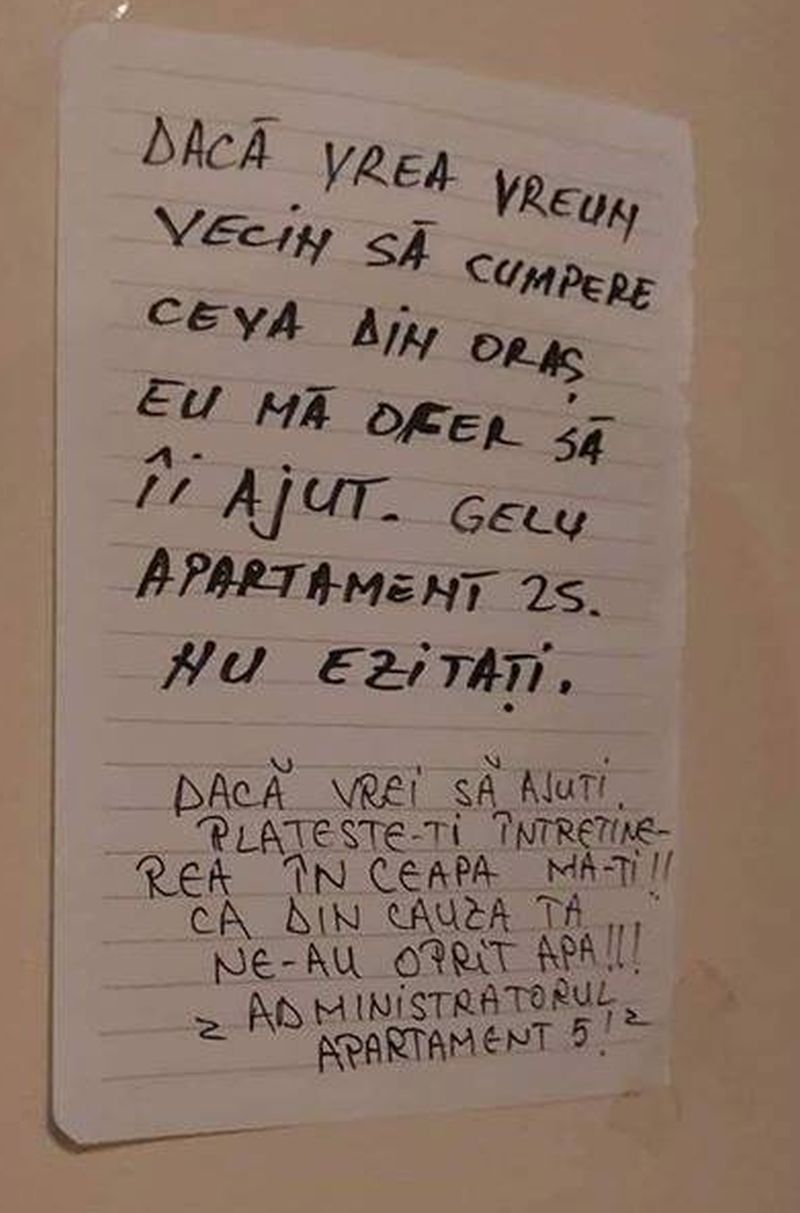 DACĂ VREA VREUN
VECIN SĂ CUMPERE
CEVA DIN ORAȘ
EU MĂ OFER SĂ
ÎI AJUT. GELU
APARTAMENT 25.
NU EZITAȚI.
DACĂ VREI SĂ AJUTI,
PLATESTE-TI ÎNTREȚINE-
REA ÎN CEAPA MĂ-TI!!
CA DIN CAUZA TA
NE-AU OPRIT APA!!!
~ ADMINISTRATORUL
APARTAMENT 5! ~